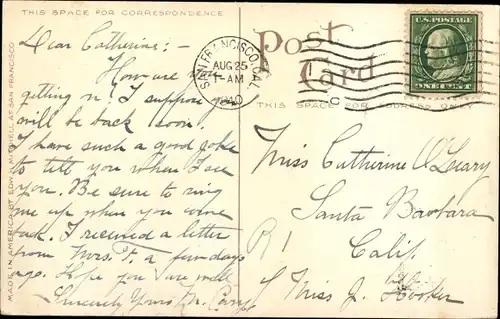 THIS SPACE FOR CORRESPONDENCE
Dear Catherine:-
How are you
getting on! I suppose you
will be back soon.
I have such a good joke
to tell you when I see
you. Be sure to ring
me up when you come
back. I received a letter
from Mrs. F. a few days
ago. Hope you are well
Sincerely Yours M. Cary
MADE IN AMERICA BY EDW. H. MITCHELL AT SAN FRANCISCO
Post
Card
THIS SPACE FOR ADDRESS ONLY
SAN FRANCISCO, CAL.
AUG 25
1-AM
1910
U.S. POSTAGE
ONE CENT
Miss Catherine O'Leary
Santa Barbara
R1
Calif.
Miss J. Hooker